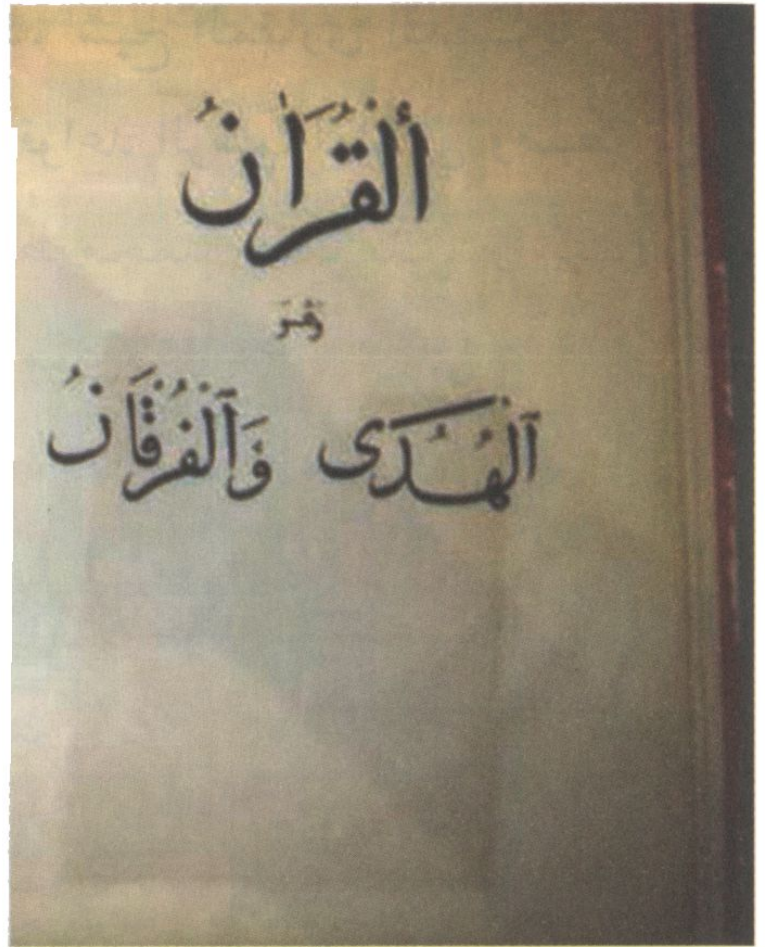 ألْقُرَاٰنُ
وَهُوَ
ٱلْهُدَى وَٱلْفُرْقَانُ